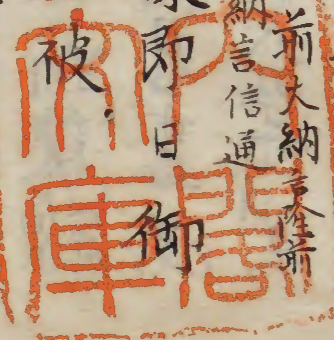 前大納言隆前
納言信通
即日 御
被
内閣
文庫